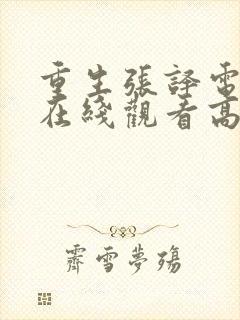 重生張譯電
在綫觀看高
霽雪夢殤